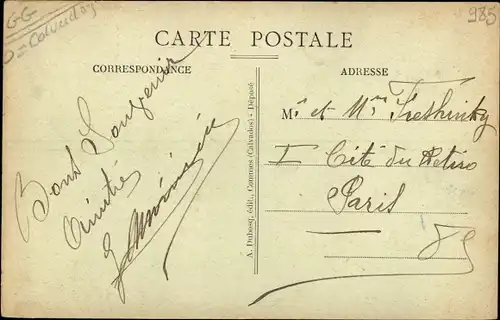 GG
Calvados
985
CARTE POSTALE
CORRESPONDANCE
ADRESSE
Bons Souvenirs
Amitiés
A. Dubosq, édit., Caumont (Calvados) - Déposé
Mr et Mme
1 Cité du Retiro
Paris